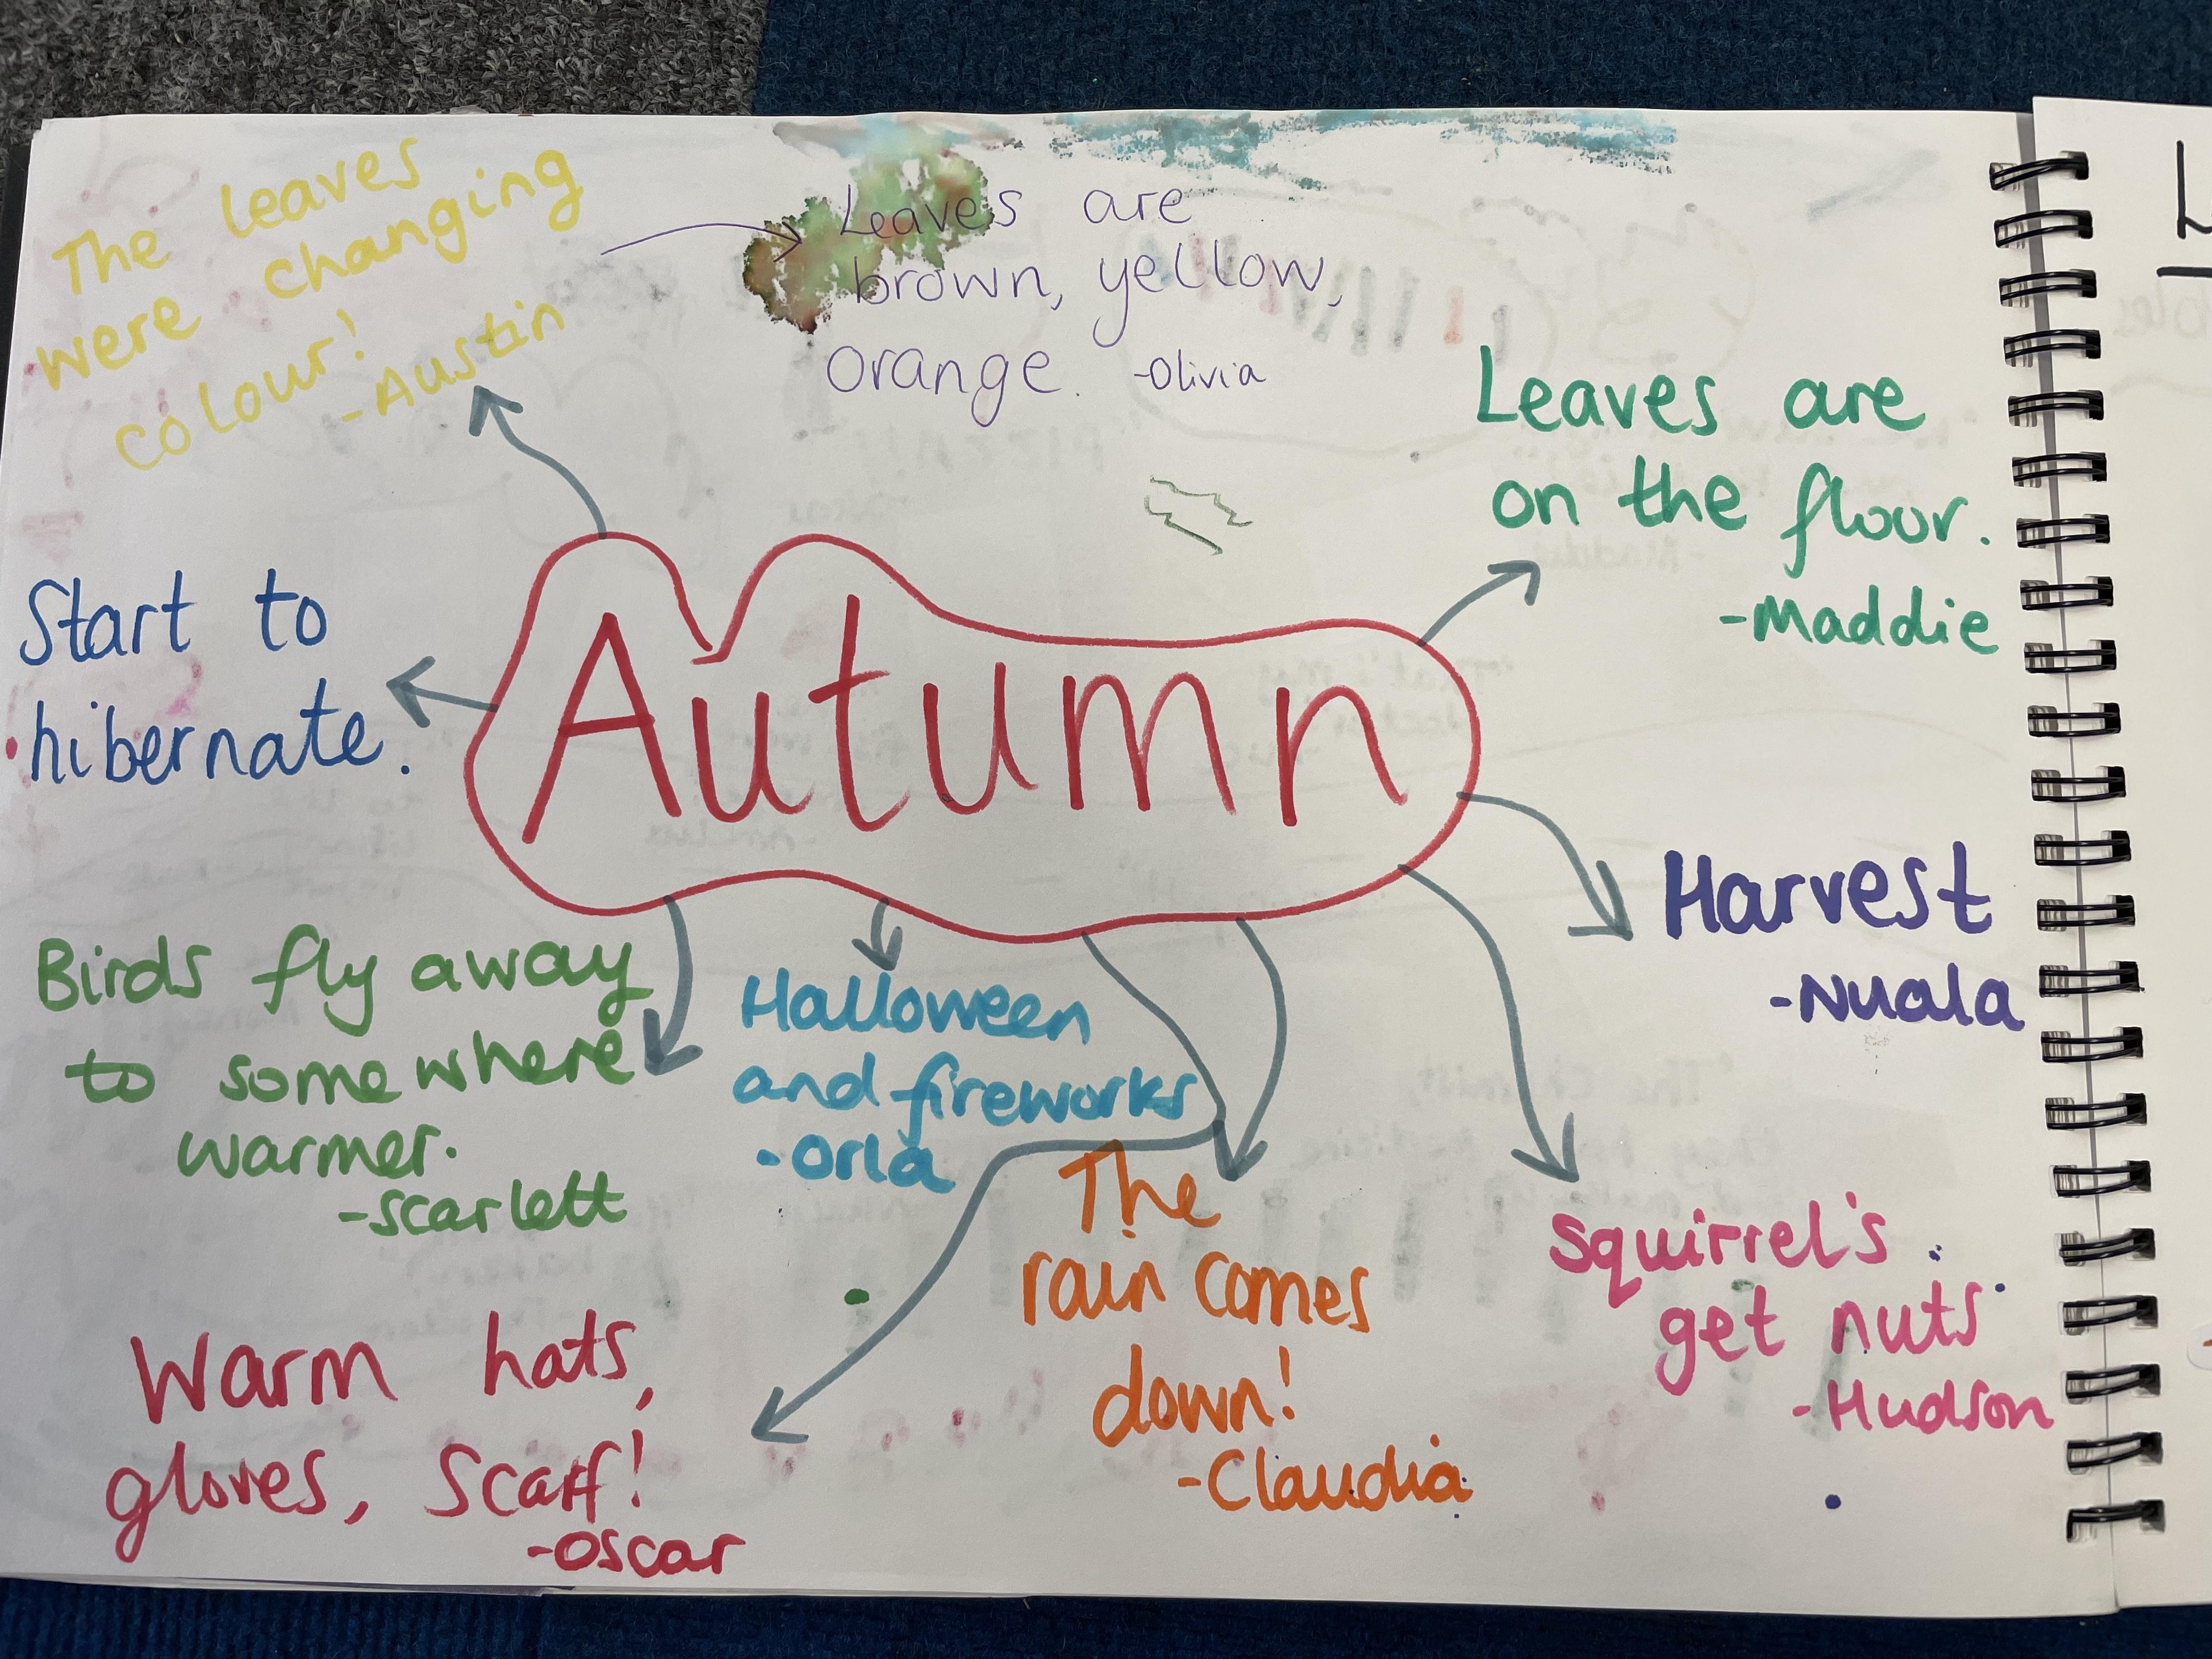 The leaves
were changing
colour!
-Austin
Leaves are
brown, yellow,
orange. -Olivia
Leaves are
on the floor.
-Maddie
Start to
hibernate.
Autumn
Harvest
-Nuala
Birds fly away
to somewhere
warmer.
-scarlett
Halloween
and fireworks
-Orla
The
rain comes
down!
-Claudia
Squirrel's
get nuts
-Hudson
Warm hats,
gloves, scarf!
-Oscar